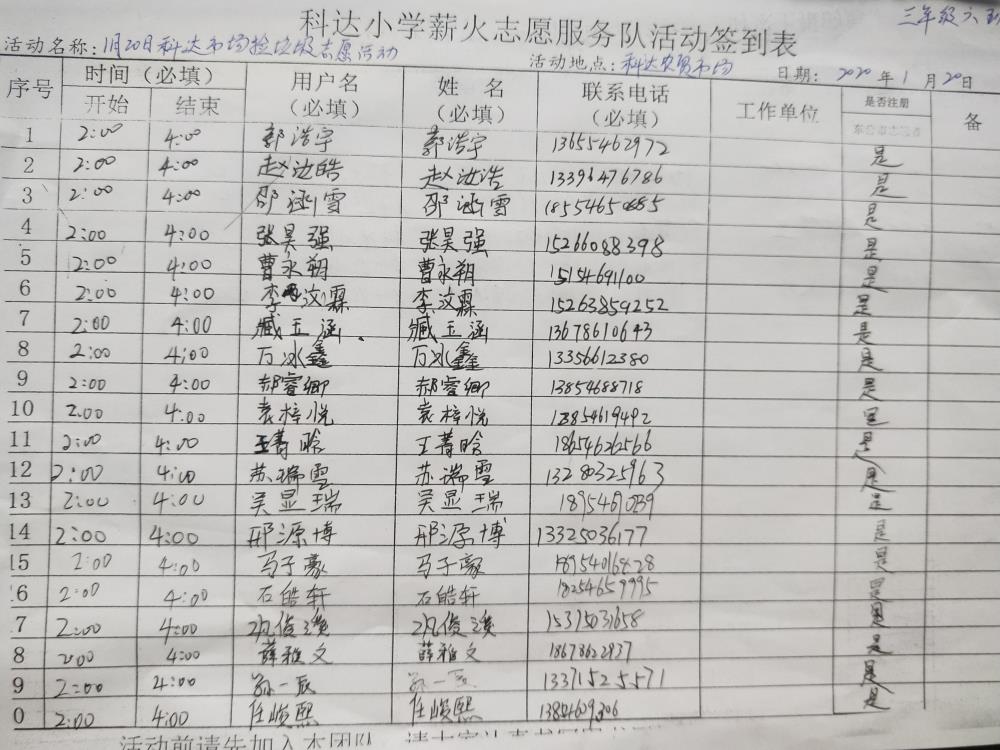 三年级六
科达小学薪火志愿服务队活动签到表
活动名称：1月20日科达市场捡垃圾志愿活动 活动地点：科达农贸市场 日期：2020年1月20日
序号 时间（必填） 用户名（必填） 姓名（必填） 联系电话（必填） 工作单位 是否注册 备
开始 结束
1 2:00 4:00 郭浩宇 郭浩宇 13655462972 是
2 2:00 4:00 赵汝皓 赵汝浩 13396476786 是
3 2:00 4:00 邵涵雪 邵涵雪 是
4 2:00 4:00 张昊强 张昊强 15266088398 是
5 2:00 4:00 曹永朔 曹永朔 15154691100 是
6 2:00 4:00 李汶霖 李汶霖 15263859252 是
7 2:00 4:00 臧玉涵 臧玉涵 13678610643 是
8 2:00 4:00 万冰鑫 万冰鑫 13356612380 是
9 2:00 4:00 郝睿卿 郝睿卿 13854688718 是
10 2:00 4:00 袁梓悦 袁梓悦 是
11 2:00 4:00 王菁晗 王菁晗 18654626566 是
12 2:00 4:00 苏瑞雪 苏瑞雪 13280325963 是
13 2:00 4:00 吴显瑞 吴显瑞 是
14 2:00 4:00 邢源博 邢源博 13325036177 是
15 2:00 4:00 马子豪 马子豪 18954016828 是
6 2:00 4:00 石皓轩 石皓轩 18254659995 是
7 2:00 4:00 15315031658 是
8 2:00 4:00 薛雅文 薛雅文 18678622937 是
9 2:00 4:00 孙一辰 孙一辰 13371525571 是
0 2:00 4:00 任峻熙 任峻熙 是
活动前请先加入本团队